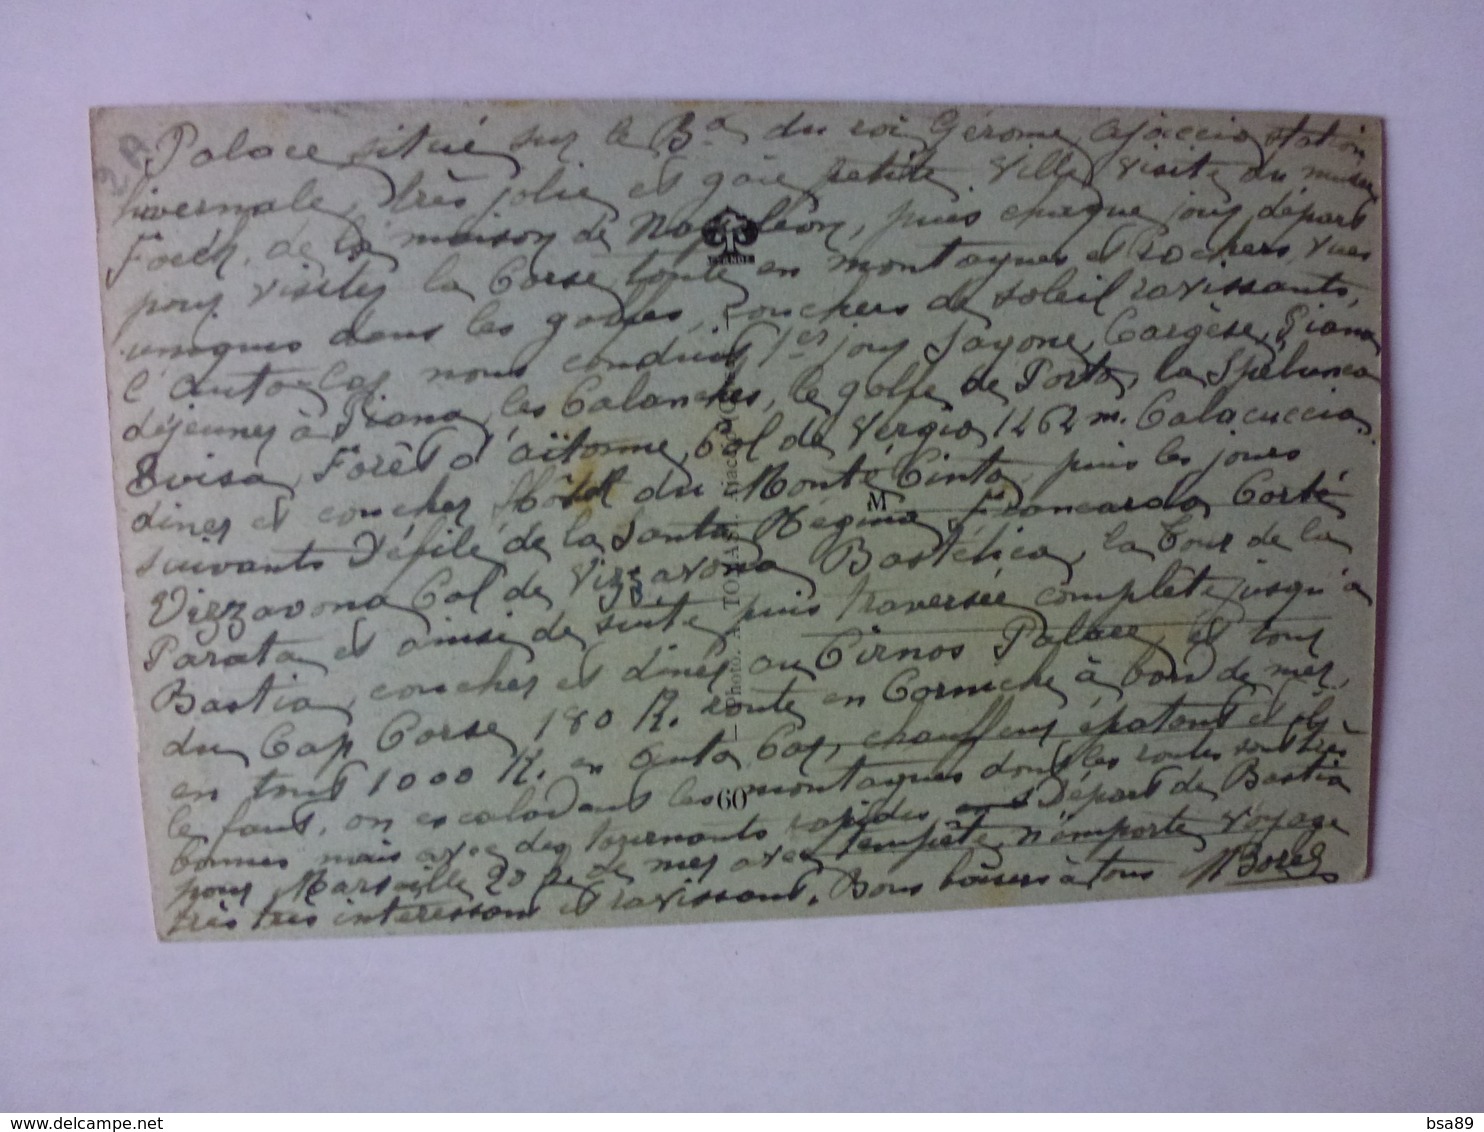 2A
Palace situé sur le Bd du roi Gérome Ajaccio station
hivernale, très jolie et gaie petite Ville, visite du musée
Foech, de la maison de Napoléon, puis chaque jour départ
pour visiter la Corse toute en montagnes et rochers, vues
uniques dans les golfes, couchers de soleil ravissants,
l'auto-car nous conduit 1er jour Sagone, Cargèse, Piana
déjeuner à Piana, les Calanches, le golfe de Porto, la Spélunca
Evisa, Forêt d'aïtonne, Col de Vergio 1462 m. Calacuccia
diner et coucher Hôtel du Monté Cinto, puis les jours
suivants Défilé de la Santa Régina, Francardo Corté
Vizzavona Col de Vizzavona Bastélica, la Tour de la
Parata et ainsi de suite puis traversée complète jusqu'à
Bastia, coucher et diner au Cirnos Palace, et tour
du Cap Corse 180 K. route en Corniche à bord de mer,
en tout 1000 K. en auto Car, chauffeur épatant et
le faut, on escaladant les montagnes dont les routes sont très
bonnes mais avec des tournants rapides Départ de Bastia
pour Marseille 20 h de mer avec tempête, n'importe voyage
très très intéressant et ravissant. Bons baisers à tous M Borel
YVONNE
Photo. A. TOMASI. Ajaccio
M
60
delcampe.net
bsa89